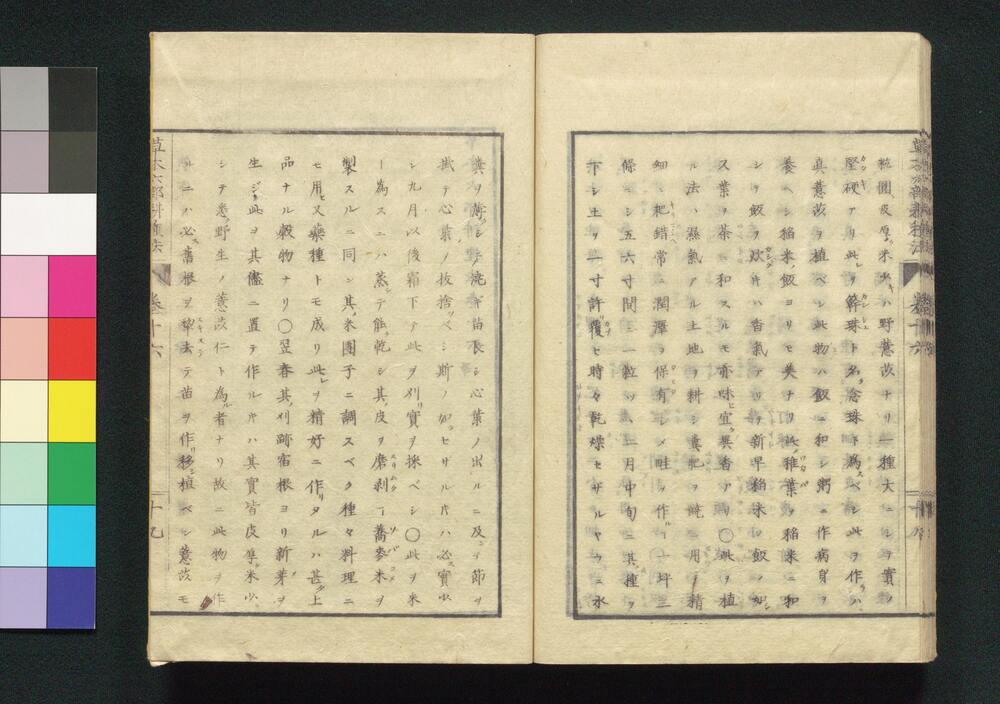 粒圓皮厚ク米少キハ野薏苡ナリ一種大ニシテ實ノ
堅硬アリ此レヲ算珠ト名ク念珠ト為スベシ此ヲ作ラハ
真薏苡ヲ植ベシ此物ハ飯ニ和シ粥ニ作病身ヲ
養ベシ稲米ノ飯ヨリモ美ナリ此稚葉ヲ稲米ニ和
シテ飯ヲ炊キハ香氣アリテ新早稲米ノ飯ノ如シ
又葉ヲ茶ニ和スルモ亦味ヒ宜ク異香アリ〇此ヲ植
ル法ハ濕氣アル土地ヲ耕シ糞肥ヲ用テ精
細ニ耙錯常ニ潤澤ヲ保有シメ畦ヲ作一坪三
條ニシ五六寸間ニ一粒ツヽ二月中旬ニ其種ヲ
下シ土ヲ二寸許覆ヒ時々乾燥セザルヤウニ水
糞ヲ澆ギ苗長シ心葉ノ出ルニ及テ節ヲ
試テ心葉ノ抜捨ベシ斯ノ如クセザル片ハ必ズ實少
シ九月以後霜下テ此ヲ刈リ實ヲ採ベシ〇此ヲ米
ト為スニハ蒸テ能ク乾シ其皮ヲ磨剥コト蕎麥米ヲ
製スルニ同シ其米團子ニ調スベク種々料理ニ
モ用ヒ又藥種トモ成リ此レヲ精好ニ作リタルハ甚ダ上
品ナル穀物ナリ〇翌春其刈跡宿根ヨリ新芽ヲ
生ジ此ヲ其儘ニ置テ作ル片ハ其實皆皮厚ク米少
シテ悉ク野生ノ薏苡仁ト為ル者ナリ故ニ此物ヲ作
ルニハ必ズ舊根ヲ犂去テ苗ヲ作リ移シ植ベシ薏苡モ
草木六部耕種法
巻十六
十九